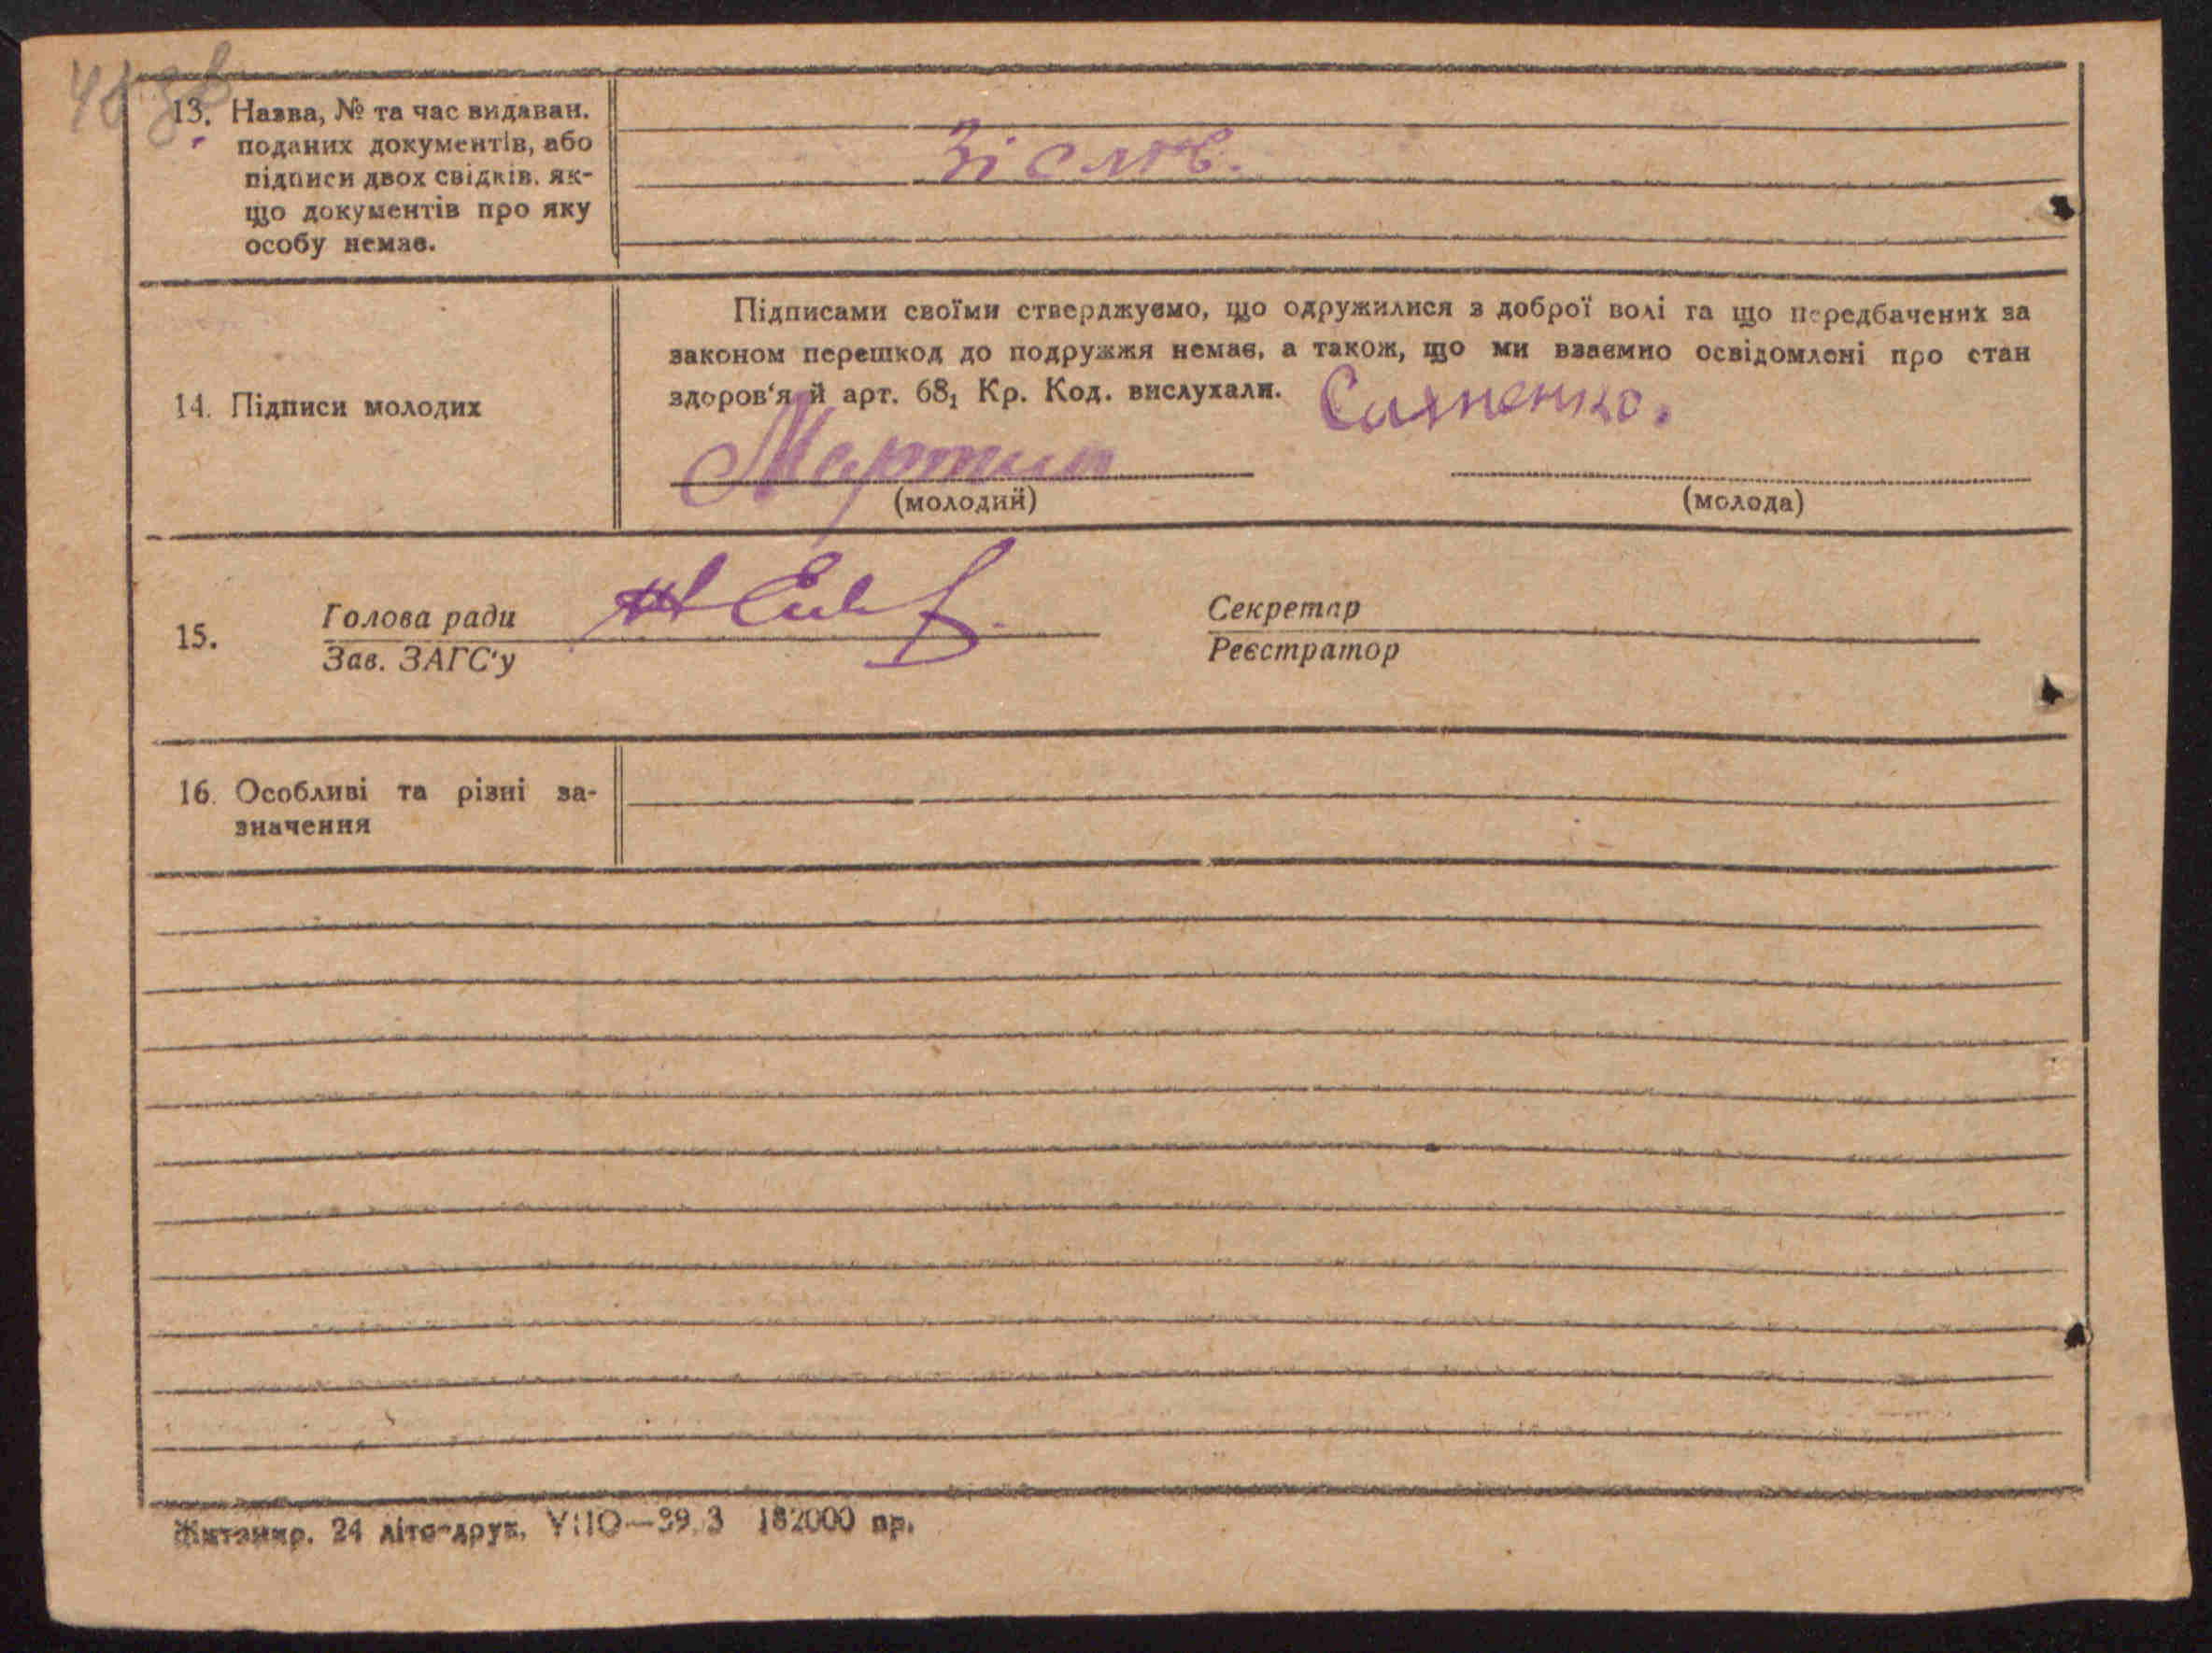 13. Назва, № та час видаван.
поданих документів, або
підписи двох свідків, як-
що документів про яку
особу немає.
Зі слів.
Підписами своїми стверджуємо, що одружилися з доброї волі та що передбачених за
законом перешкод до подружжя немає, а також, що ми взаємно освідомлені про стан
здоров'я й арт. 68₁ Кр. Код. вислухали.
14. Підписи молодих
(молодий)
(молода)
15.
Голова ради
Зав. ЗАГС'у
Секретар
Реєстратор
16. Особливі та різні за-
значення
Житомир. 24 літо-друк. 182000 пр.